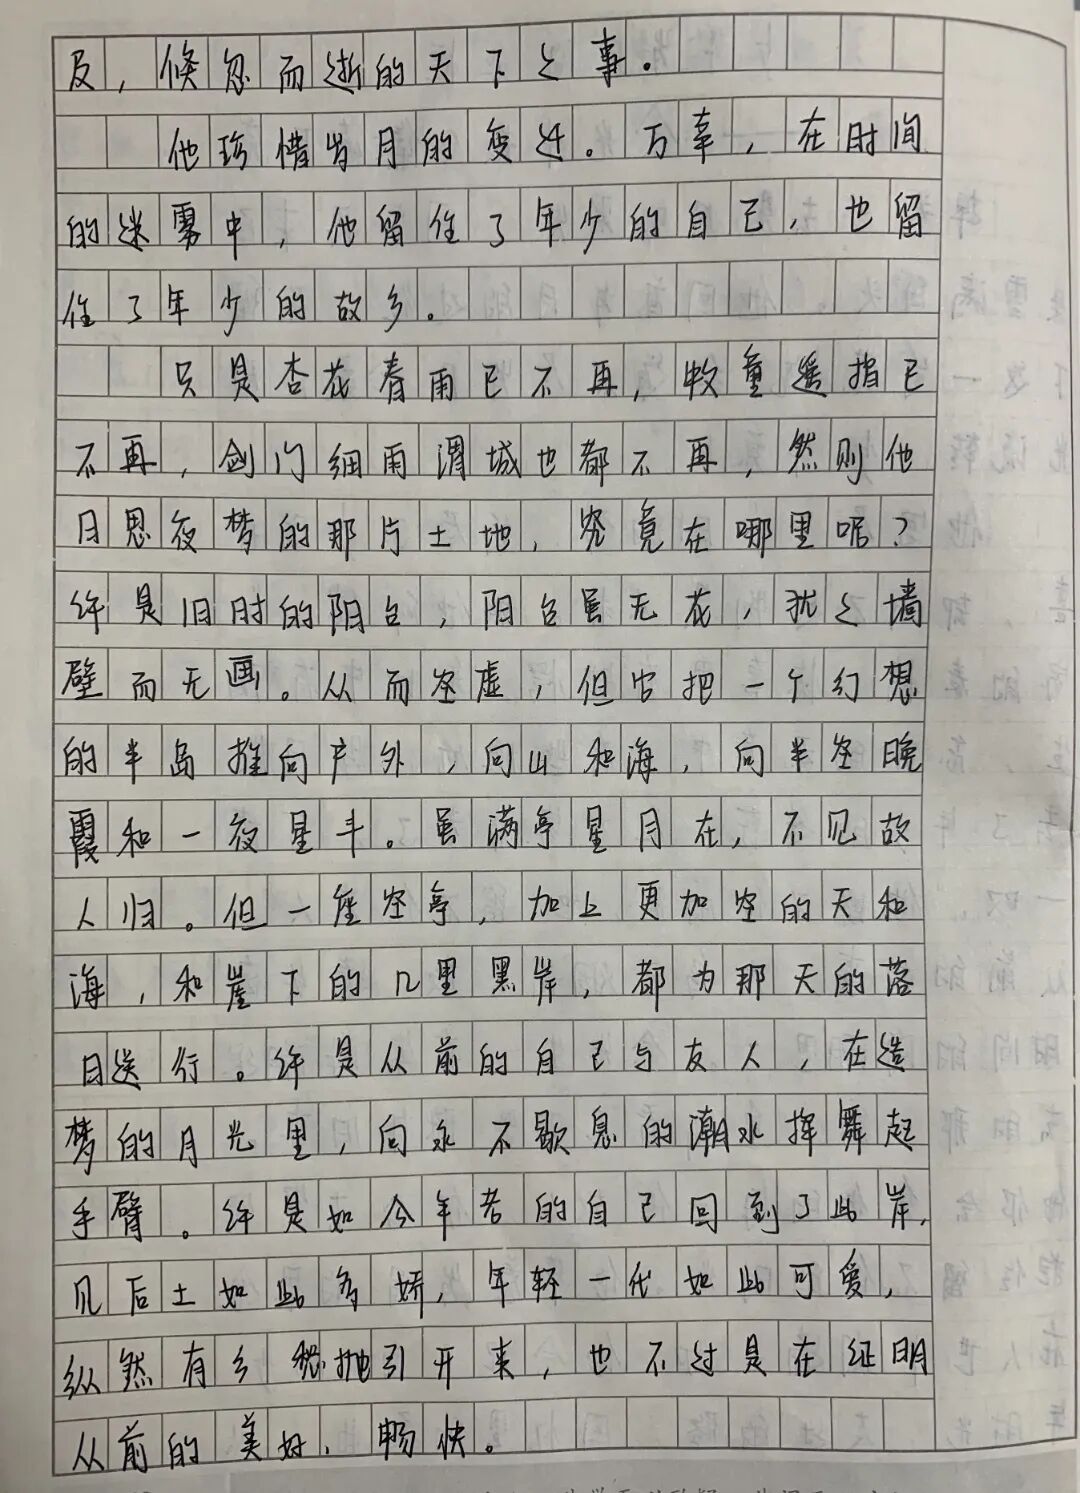 及，倏忽而逝的天下之事。
他珍惜岁月的变迁。万幸，在时间
的迷雾中，他留住了年少的自己，也留
住了年少的故乡。
只是杏花春雨已不再，牧童遥指已
不再，剑门细雨渭城也都不再，然则他
日思夜梦的那片土地，究竟在哪里呢？
许是旧时的阳台，阳台虽无花，扰之墙
壁而无画。从而空虚，但它把一个幻想
的半岛推向户外，向山和海，向半空晚
霞和一夜星斗。虽满亭星月在，不见故
人归。但一座空亭，加上更加空的天和
海，和崖下的几里黑岸，都为那天的落
日送行。许是从前的自己与友人，在造
梦的月光里，向永不歇息的潮水挥舞起
手臂。许是如今年老的自己回到了此岸，
见后土如此多娇，年轻一代如此可爱，
纵然有乡愁抛引开来，也不过是在证明
从前的美好、畅快。